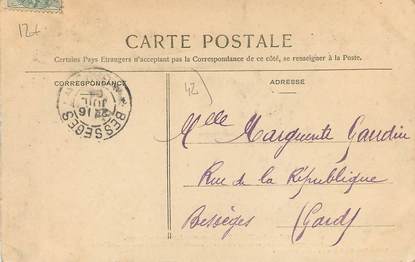 12+
CARTE POSTALE
Certains Pays Etrangers n'acceptant pas la Correspondance de ce côté, se renseigner à la Poste.
CORRESPONDANCE
ADRESSE
42
16
JUIL
BESSÈGES
Mlle Marguerite Gaudin
Rue de la République
Bessèges (Gard)